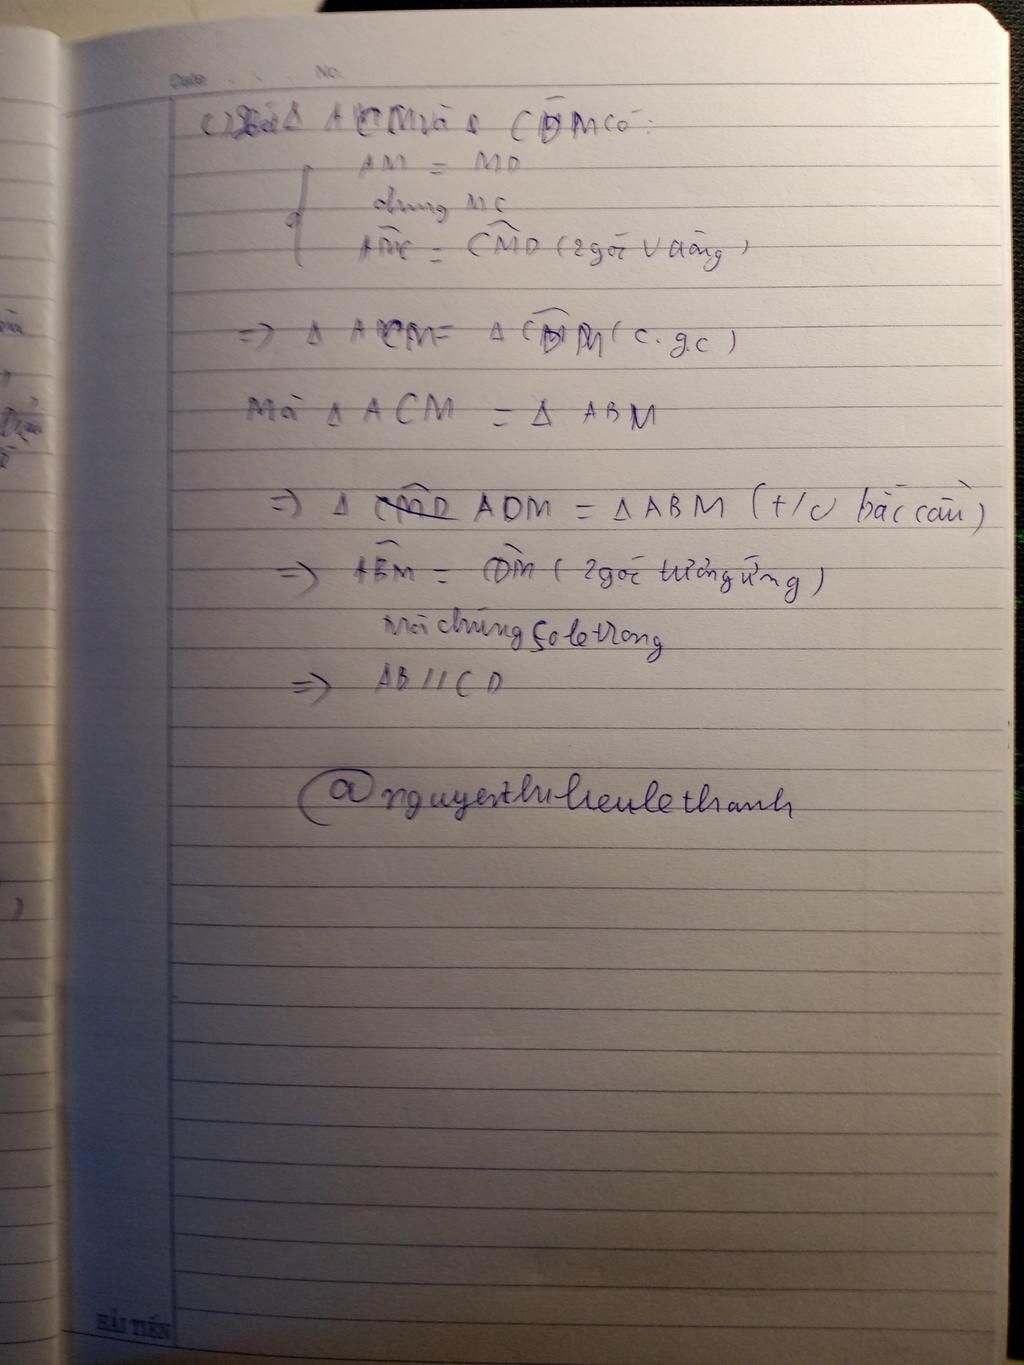 Date . . . No.
c) Xét Δ ACM và Δ CDM có:
AM = MD
chung MC
AMC = CMD (2 góc vuông)
=> Δ ACM = Δ CDM (c.g.c)
Mà Δ ACM = Δ ABM
=> Δ CMD ADM = Δ ABM (t/c bắc cầu)
=> ABM = (2 góc tương ứng)
mà chúng so le trong
=> AB // CD
@nguyenthihieulethanh
HẢI TIẾN